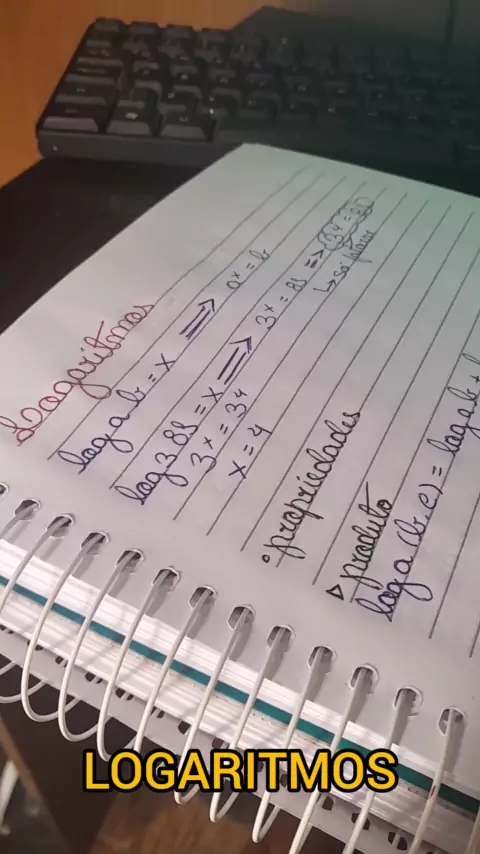 Logaritmos
log a b = x ⟹ a^x = b
log 3 81 = x ⟹ 3^x = 81 => 3^4 = 81
3^x = 3^4 ↳ so fatorar
x = 4
• propriedades
▷ produto
log a (b.c) = log a b +
LOGARITMOS